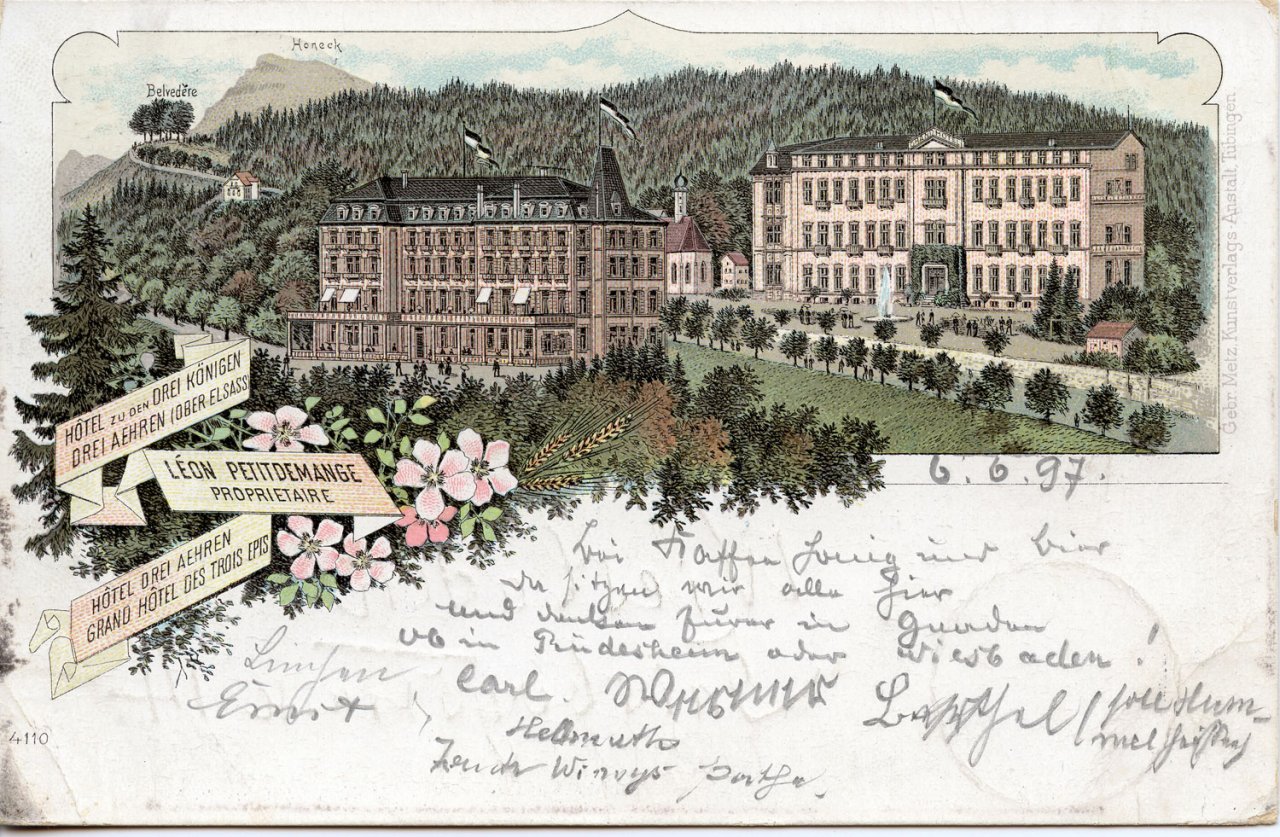 Honeck
Belvedère
HÔTEL ZU DEN DREI KÖNIGEN
DREI AEHREN (OBER-ELSASS)
LÉON PETITDEMANGE
PROPRIETAIRE
HÔTEL DREI AEHREN
GRAND HÔTEL DES TROIS EPIS
Gebr. Metz, Kunstverlags-Anstalt, Tübingen
6. 6. 97.
Bei Kaffee Honig und Bier
da sitzen wir alle hier
und denken Eurer in Gnaden
ob in Rüdesheim oder Wiesbaden!
Linchen
Ernst
Carl.
Barthel / soll Hum-
mel heißen
Hellmuth
4110